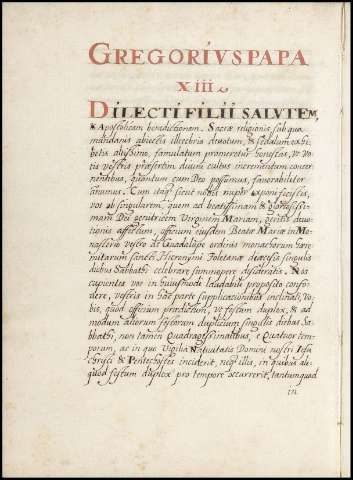 GREGORIVS PAPA
XIII
DILECTI FILII SALVTEM,
& Apostolicam benedictionem. Sacræ religionis sub qua
mundanis abiectis illecebris deuotum, & sedulum exhi-
betis altissimo, famulatum promeretur honestas, vt vo-
tis vestris præsertim diuini cultus incrementum concer-
nentibus, quantum cum Deo possumus, fauorabiliter
annuamus. Cum itaq; sicut nobis nuper exponi fecistis,
vos ob singularem, quem ad beatissimam & gloriosissi-
mam Dei genitricem Virginem Mariam, geritis deuo-
tionis affectum, officium eiusdem Beatæ Mariæ in Mo-
nasterio vestro de Guadalupe ordinis monachorum hære-
mitarum sancti Hieronymi Toletanæ diœcesis singulis
diebus Sabbathi celebrare summopere desideratis. Nos
cupientes vos in huiusmodi laudabili proposito confo-
uere, vestris in hac parte supplicationibus inclinati, vo-
bis, quod officium prædictum, vt festum duplex, & ad
modum aliorum festorum duplicium singulis diebus Sab-
bathi, non tamen Quadragesimalibus, & Quatuor tem-
porum, ac in quo Vigilia Natiuitatis Domini nostri Iesu
christi & Pentechostes inciderit, neq; illis, in quibus ali-
quod festum duplex pro tempore occurrerit, tantumquod
in